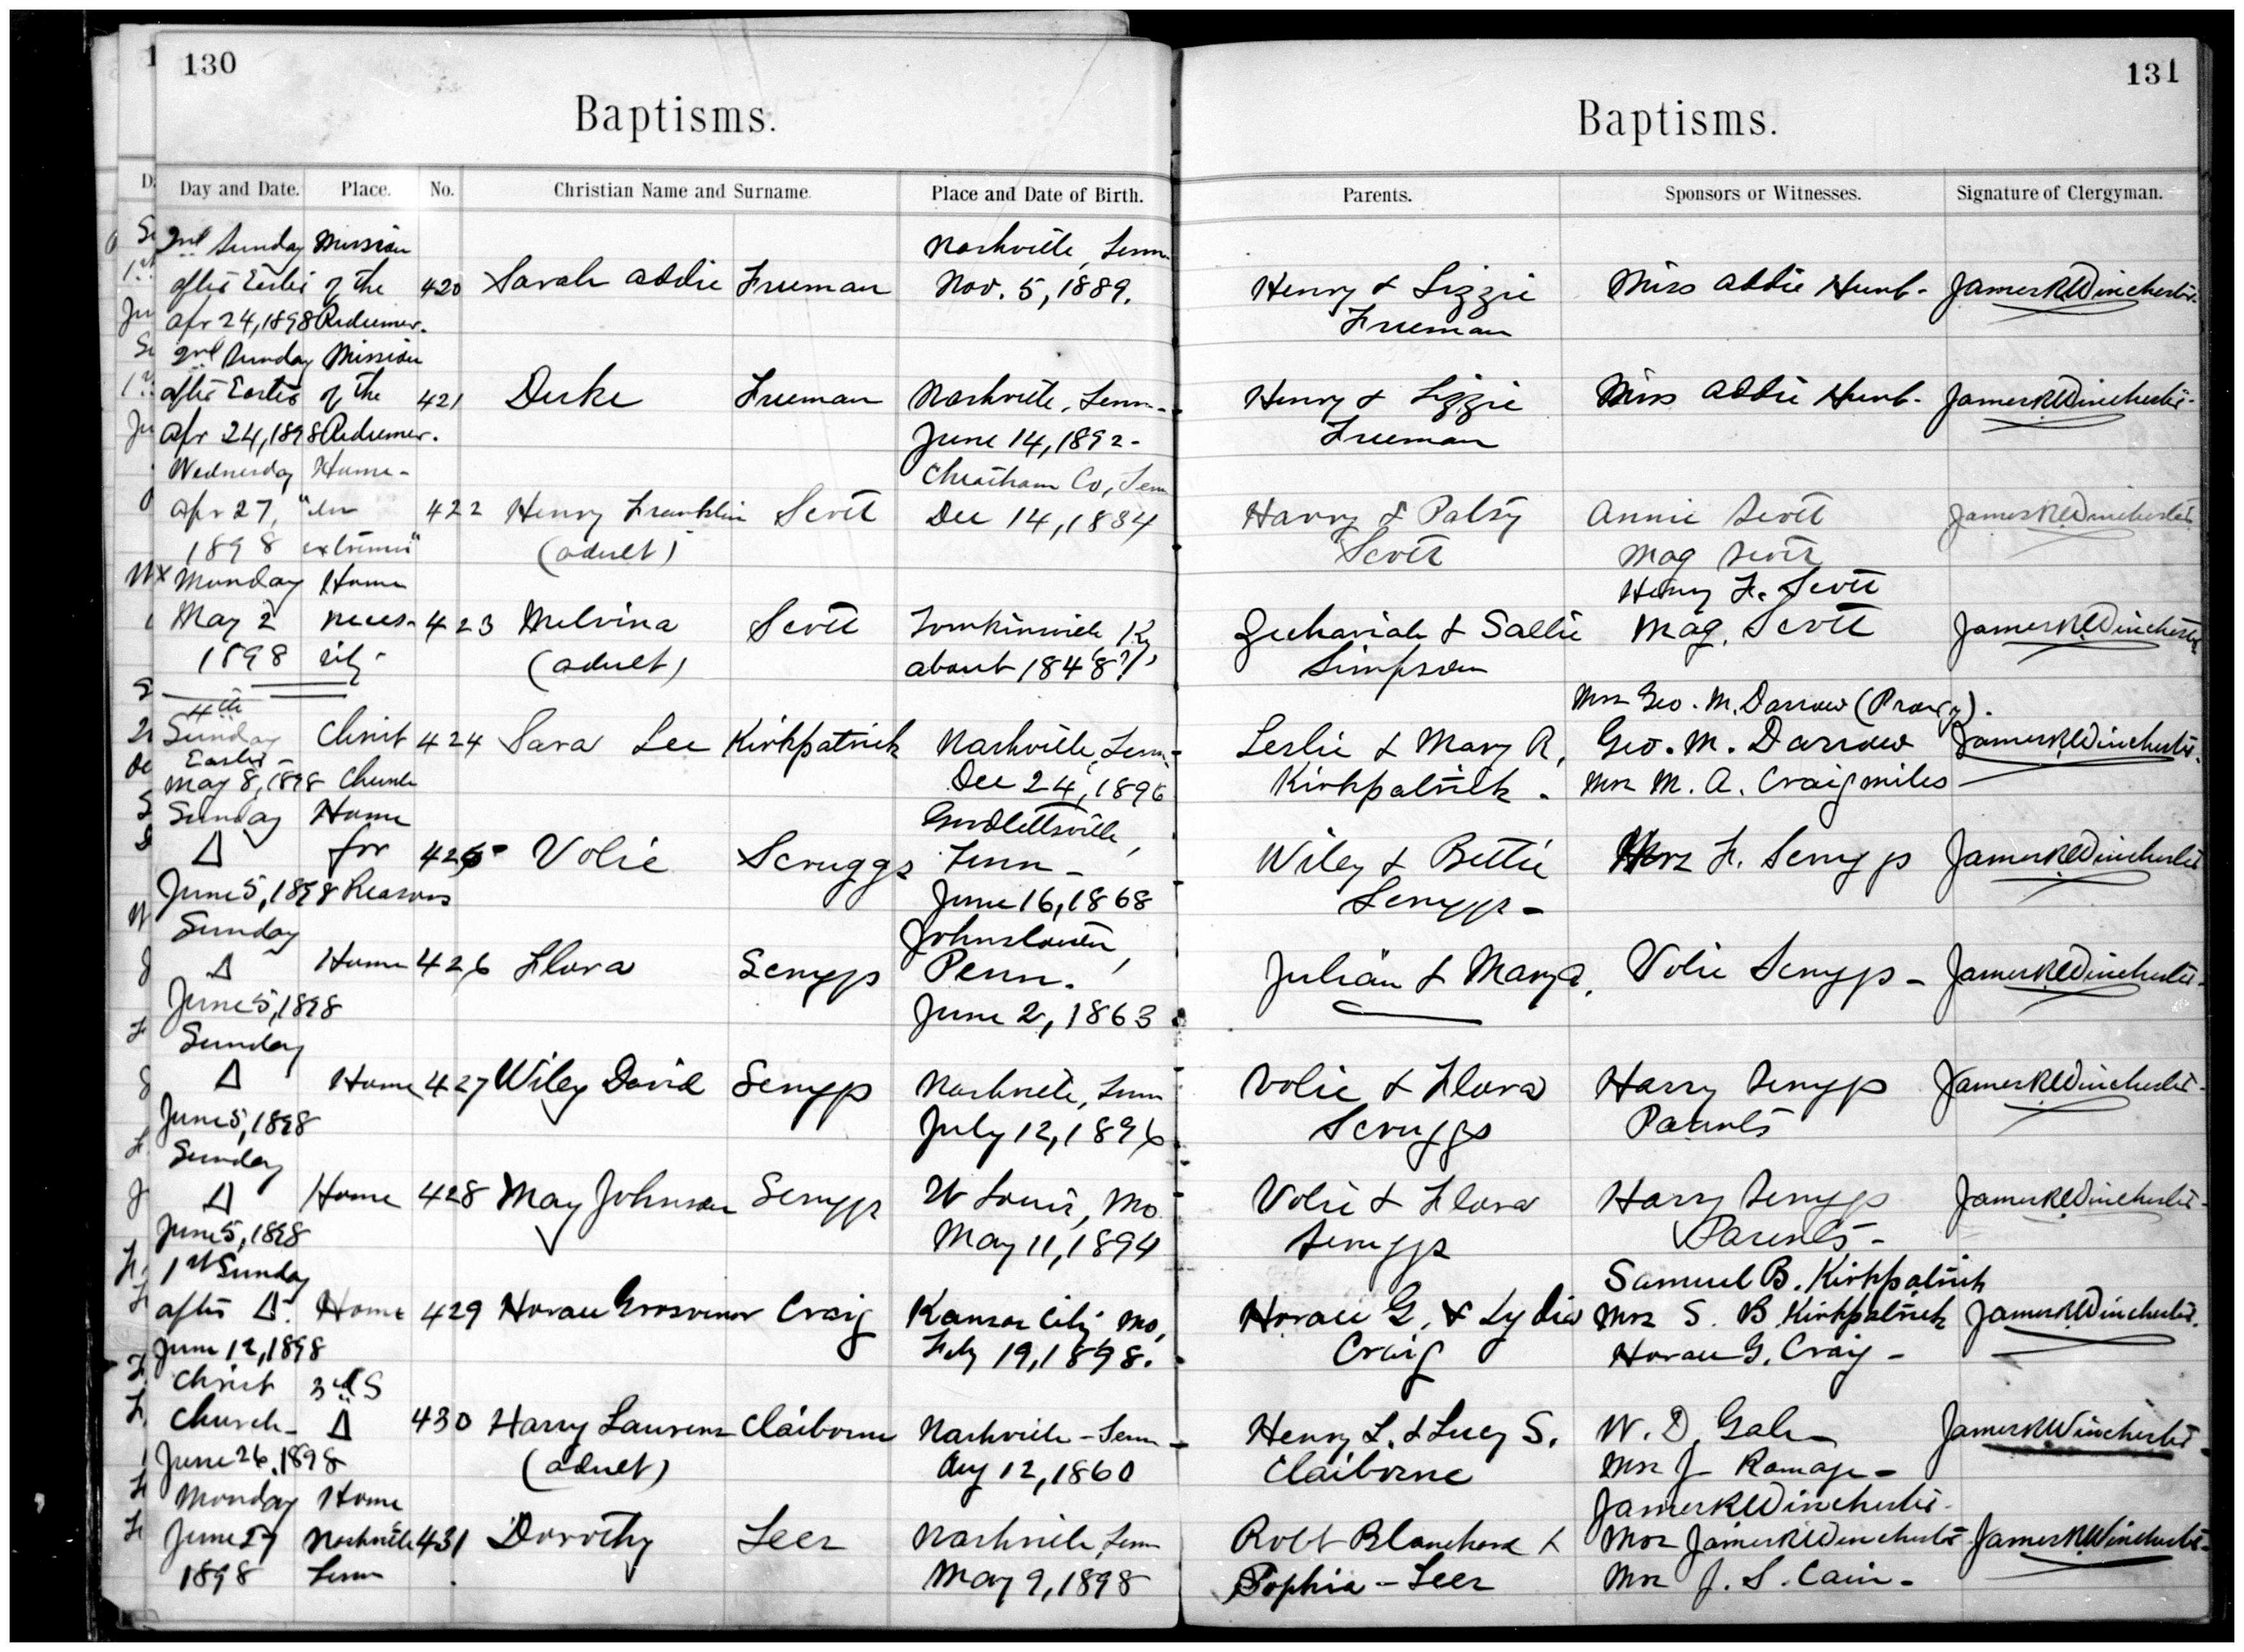 130
Baptisms.
Day and Date. Place. No. Christian Name and Surname. Place and Date of Birth.
2nd Sunday Mission Nashville, Tenn
after Easter of the 420 Sarah Addie Freeman Nov. 5, 1889.
Apr 24, 1898 Redeemer.
2nd Sunday Mission
after Easter of the 421 Duke Freeman Nashville, Tenn-
Apr 24, 1898 Redeemer. June 14, 1892-
Wednesday Home- Cheatham Co, Tenn
Apr 27, "in 422 Henry Franklin Scott Dec 14, 1834
1898 extremis" (adult)
x Monday Home
May 2 neces- 423 Melvina Scott Tomkinsville Ky,
1898 sity- (adult) about 1848(?)
4th
Sunday Christ 424 Sara Lee Kirkpatrick Nashville, Tenn-
Easter- Dec 24, 1896
May 8, 1898 Church
Sunday Home Goodlettsville,
Δ for 425 Volie Scruggs Tenn-
June 5, 1898 Reasons June 16, 1868
Sunday Johnstown,
Δ Home 426 Flora Scruggs Penn.
June 5, 1898 June 2, 1863
Sunday
Δ Home 427 Wiley David Scruggs Nashville, Tenn
June 5, 1898 July 12, 1896
Sunday
Δ Home 428 May Johnson Scruggs St Louis, Mo
June 5, 1898 May 11, 1894
1st Sunday
after Δ. Home 429 Horace Grosvenor Craig Kansas City, Mo,
June 12, 1898 Feby 19, 1898.
Christ 3rd S
Church- Δ 430 Harry Laurens Claiborne Nashville-Tenn-
June 26, 1898 (adult) Aug 12, 1860
Monday Home
June 27 Nashville 431 Dorothy Leer Nashville, Tenn
1898 Tenn May 9, 1898
131
Baptisms.
Parents. Sponsors or Witnesses. Signature of Clergyman.
Henry & Lizzie Miss Addie Hunt- James R Winchester-
Freeman
Henry & Lizzie Miss Addie Hunt- James R Winchester-
Freeman
Harry & Patsy Annie Scott James R Winchester
Scott Mag Scott
Henry F. Scott
Zechariah & Sallie Mag. Scott James R Winchester
Simpson
Mrs Geo. M. Darrow (Proxy).
Leslie & Mary R, Geo. M. Darrow James R Winchester.
Kirkpatrick- Mrs M. A. Craigmiles
Wiley & Bettie Mrs F. Scruggs James R Winchester
Scruggs-
Julian & Mary A, Volie Scruggs- James R Winchester-
Volie & Flora Harry Scruggs James R Winchester-
Scruggs Parents
Volie & Flora Harry Scruggs James R Winchester-
Scruggs Parents-
Samuel B. Kirkpatrick
Horace G. & Lydia Mrs S. B Kirkpatrick James R Winchester.
Craig Horace G. Craig-
Henry L. & Lucy S. W. D. Gale James R Winchester-
Claiborne Mrs J- Ramage-
James R Winchester-
Robt Blanchard & Mrs James R Winchester James R Winchester-
Sophia-Leer Mrs J. S. Cain-